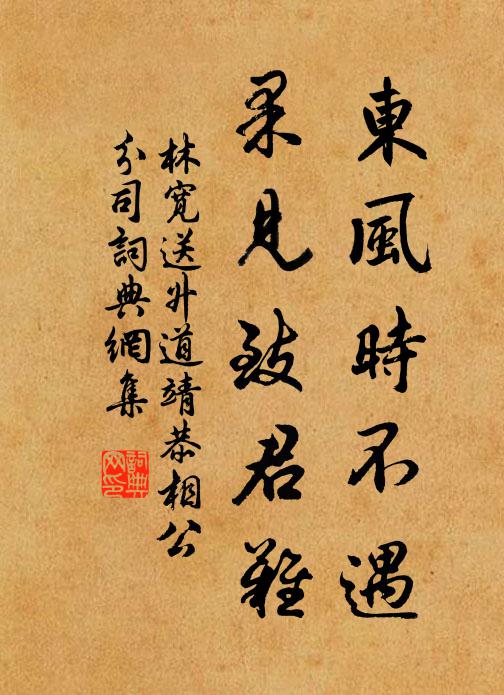 東風時不遇
果見致君難
林寬送升道靖恭相公
分司詞典網集
詞典
网印